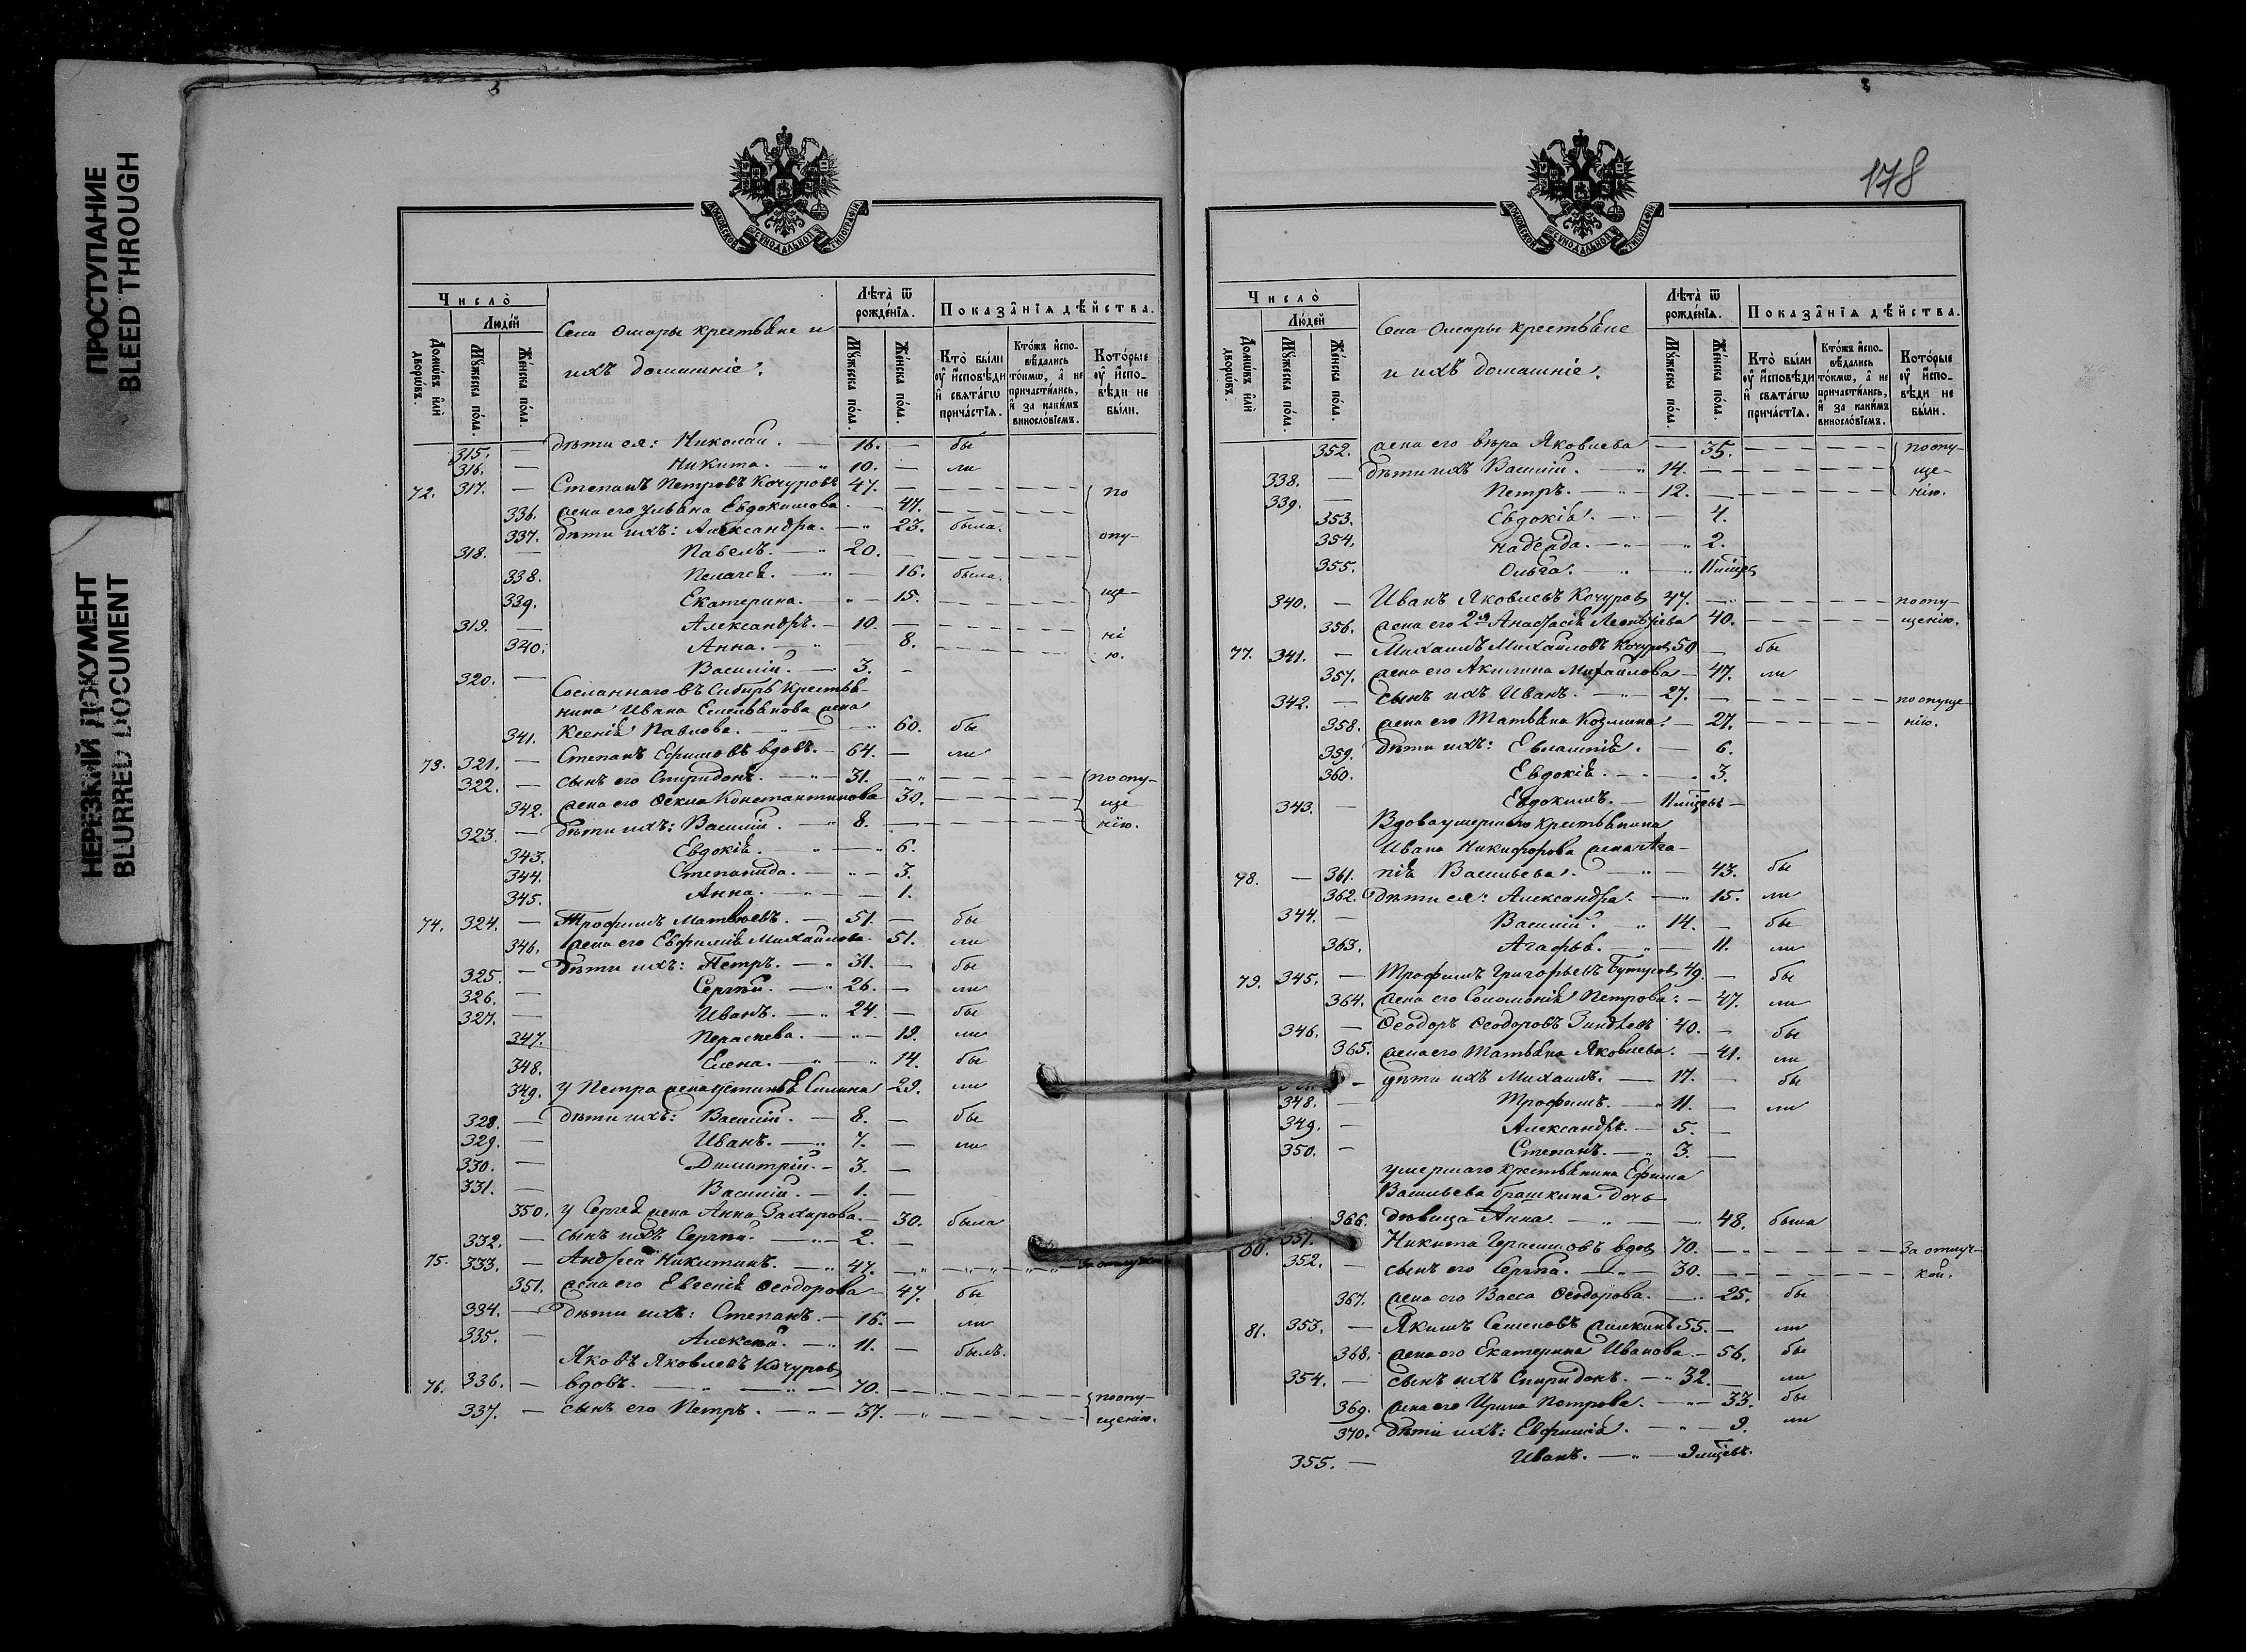 ПРОСТУПАНИЕ
BLEED THROUGH
НЕРЕЗКИЙ ДОКУМЕНТ
BLURRED DOCUMENT
МОСКОВСКОЙ СѴНОДАЛЬНОЙ ТИПОГРАФІИ
Число̀
Людей
Домѡвъ и҆лѝ дворѡвъ.
Мꙋжеска пола.
Женска пола.
Села Омары крестьяне и
ихъ домашніе:
Лѣта̀ ѿ рожденїѧ.
Мꙋжеска пола.
Женска пола.
Показанїѧ дѣйства.
Кто̀ были ᲂу҆ и҆сповѣди и҆ свѧтагѡ причастїѧ.
Ктожъ и҆сповѣдались токмѡ, а҆ не причастились, и҆ за какимъ винословїемъ.
Которые ᲂу҆ и҆сповѣди не были.
315. — дѣти ея: Николай. — 16. — бы
316. — Никита. — 10. — ли
72. 317. — Степанъ Петровъ Кочуровъ 47. — по
336. жена его Ульяна Евдокимова — 47.
337. дѣти ихъ: Александра. — 23. была. опу-
318. — Павелъ. — 20. —
338. Пелагея. — 16. была.
339. Екатерина. — 15. ще-
319. — Александръ. — 10. —
340. Анна. — 8. ні
320. — Василій. — 3. — ю.
Сосланнаго въ Сибирь крестья-
нина Ивана Емельянова жена
341. Ксенія Павлова. — 60. бы
73. 321. — Степанъ Ефимовъ вдовъ. — 64. — ли
322. — сынъ его Спиридонъ. — 31. — по опу-
342. жена его Ѳекла Константинова 30. ще
323. — дѣти ихъ: Василій. — 8. — нію.
343. Евдокія. — 6.
344. Степанида. — 3.
345. Анна. — 1.
74. 324. — Трофимъ Матвѣевъ. — 51. — бы
346. жена его Евфимія Михайлова. 51. ли
325. — дѣти ихъ: Петръ. — 31. — бы
326. — Сергѣй. — 26. — ли
327. — Иванъ. — 24. — бы
347. Параскева. — 19. ли
348. Елена. — 14. бы
349. у Петра жена Устинья Силина 29. ли
328. — дѣти ихъ: Василій. — 8. — бы
329. — Иванъ. — 7. — ли
330. — Димитрій. — 3. —
331. — Василій. — 1. —
350. у Сергея жена Анна Захарова. — 30. была
332. — сынъ ихъ Сергѣй. — 2. —
75. 333. — Андрей Никитинъ. — 47. — За отлучкой
351. жена его Евгенія Ѳеодорова — 47. бы
334. — дѣти ихъ: Степанъ. — 16. — ли
335. — Алексѣй. — 11. — былъ.
Яковъ Яковлевъ Кочуровъ
76. 336. — вдовъ. — 70. — по опу-
337. — сынъ его Петръ. — 37. — щенію.
178
МОСКОВСКОЙ СѴНОДАЛЬНОЙ ТИПОГРАФІИ
Число̀
Людей
Домѡвъ и҆лѝ дворѡвъ.
Мꙋжеска пола.
Женска пола.
Села Омары крестьяне
и ихъ домашніе:
Лѣта̀ ѿ рожденїѧ.
Мꙋжеска пола.
Женска пола.
Показанїѧ дѣйства.
Кто̀ были ᲂу҆ и҆сповѣди и҆ свѧтагѡ причастїѧ.
Ктожъ и҆сповѣдались токмѡ, а҆ не причастились, и҆ за какимъ винословїемъ.
Которые ᲂу҆ и҆сповѣди не были.
352. жена его Вѣра Яковлева — 35. по опу-
338. — дѣти ихъ Василій. — 14. — ще-
339. — Петръ. — 12. — нію.
353. Евдокія. — 4.
354. Надежда. — 2.
355. Ольга. — 11 мѣсяц
340. — Иванъ Яковлевъ Кочуровъ 47. — по опу-
356. жена его 2я Анафасія Леонтьева 40. щенію.
77. 341. — Михаилъ Михайловъ Кочуровъ 50 — бы
357. жена его Акилина Михайлова — 47. ли
342. — сынъ ихъ Иванъ. — 27. — по опуще
358. жена его Татьяна Козмина. — 27. нію.
359. дѣти ихъ: Евлампія. — 6.
360. Евдокія. — 3.
343. — Евдокимъ. — 11 мѣсяцевъ —
Вдова умершаго крестьянина
Ивана Никифорова жена Ага-
78. — 361. пія Васильева. — 43. бы
362. дѣти ея: Александра. — 15. ли
344. — Василій. — 14. — бы
363. Агафья. — 11. ли
79. 345. — Трофимъ Григорьевъ Бутусовъ 49. — бы
364. жена его Соломонія Петрова. — 47. ли
346. — Ѳеодоръ Ѳеодоровъ Зиндяевъ 40. — бы
365. жена его Татьяна Яковлева. — 41. ли
— дѣти ихъ Михаилъ. — 17. — бы
348. — Трофимъ. — 11. — ли
349. — Александръ. — 5. —
350. — Степанъ. — 3. —
умершаго крестьянина Ефима
Васильева Брашкина дочь
366. дѣвица Анна. — 48. была
80. 351. Никита Герасимовъ вдовъ 70. — За отлуч-
352. — сынъ его Сергѣй. — 30. — кой.
367. жена его Васса Ѳеодорова. — 25. бы
81. 353. — Якимъ Семеновъ 55. — ли
368. жена его Екатерина Иванова — 56. бы
354. — сынъ ихъ Спиридонъ. — 32. — ли
369. жена его Ирина Петрова. — 33. бы
370. дѣти ихъ: Евфимія. — 9. ли
355. — Иванъ. — 9 мѣсяцевъ.